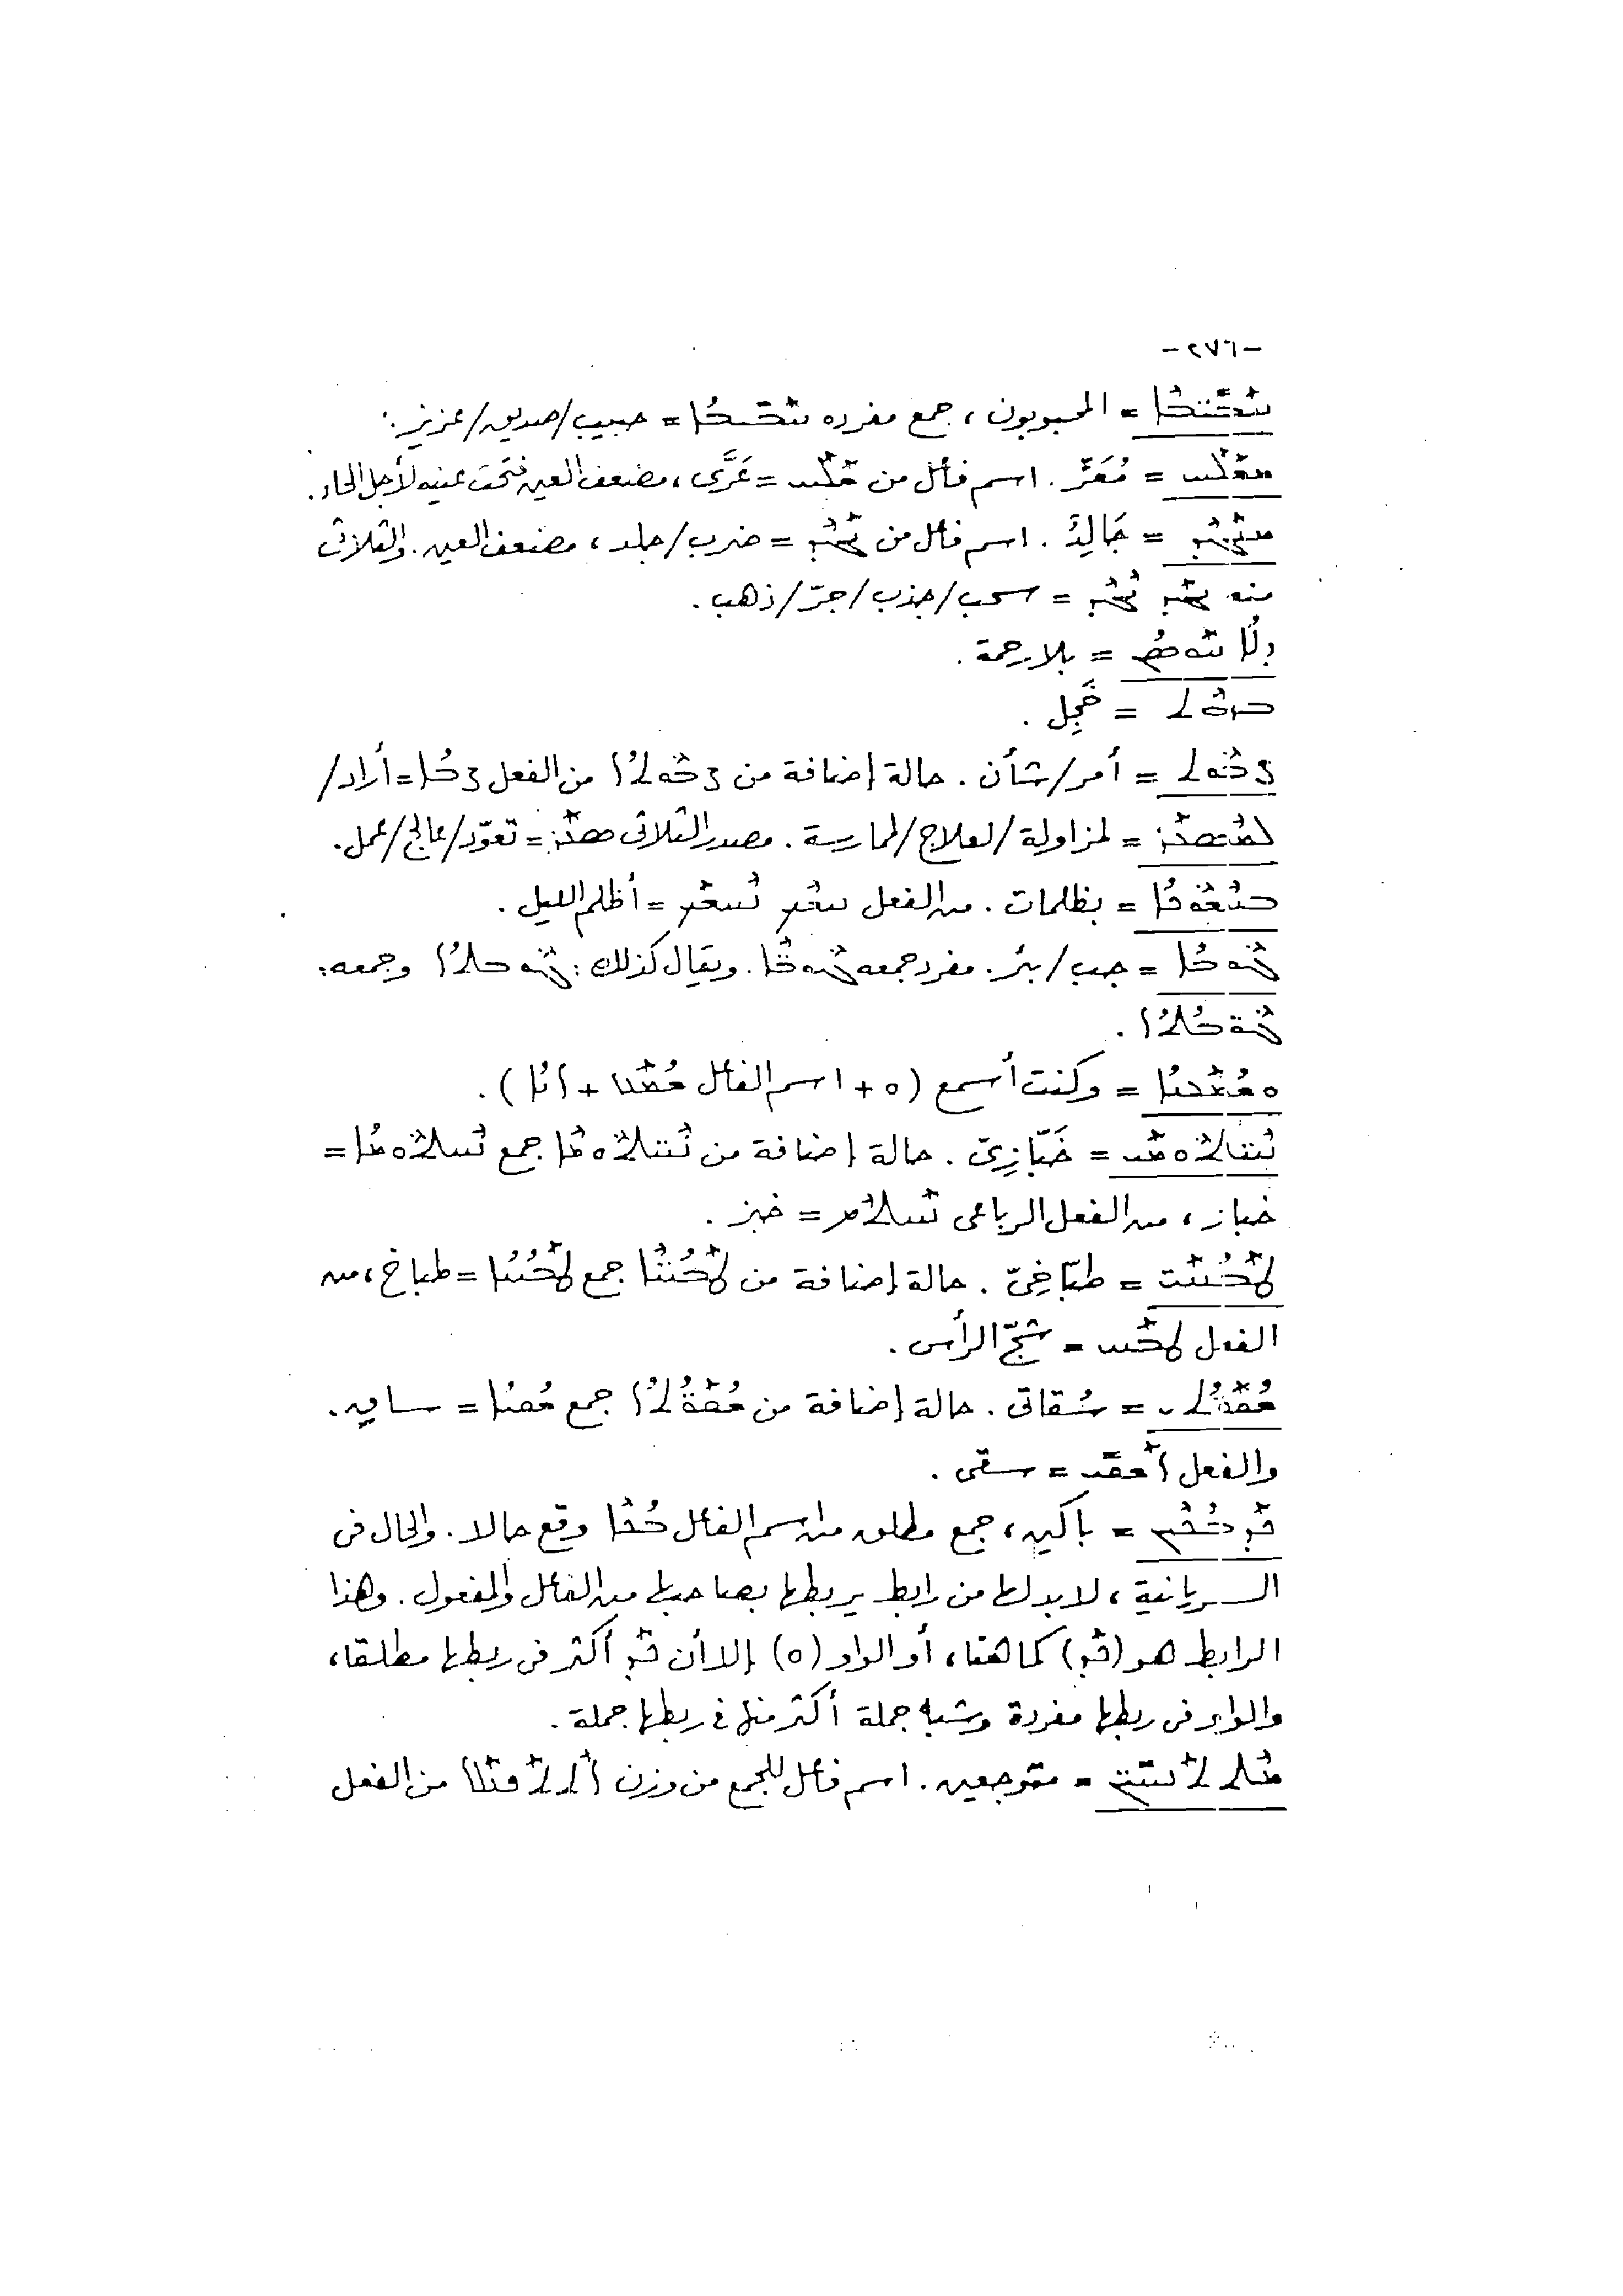 -٢٧٦-
ܚܒܝ̈ܒܐ = المحبوبون، جمع مفرده ܚܒܝܒܐ = حبيب/صديق/عزيز.
ܡܫܠܚ = مُعَرٍّ. اسم فاعل من ܫܠܚ = عَرَّى، مضعف العين فتحت عينه لأجل الحاء.
ܡܢܓܕ = جَالِدٌ. اسم فاعل من ܢܓܕ = ضرب/جلد، مضعف العين. والثلاثى
منه ܢܓܕ ܢܓܕ = سحب/جذب/جرّ/ذهب.
ܕܠܐ ܚܘܣܢ = بلا رحمة.
ܒܗܬ = خَجِل.
ܨܒܘܬ = أمر/شأن. حالة إضافة من ܨܒܘܬܐ من الفعل ܨܒܐ = أراد/
ܠܡܣܥܪ = لمزاولة/لعلاج/لممارسة. مصدر الثلاثى ܣܥܪ = تعوّد/عالج/عمل.
ܒܚܫܘܟܐ = بظلمات. من الفعل ܚܫܟ ܢܚܫܟ = أظلم الليل.
ܓܘܒܐ = جب/بئر. مفرد جمعه ܓܘ̈ܒܐ. ويقال كذلك: ܓܘܒܬܐ وجمعه:
ܓܘ̈ܒܬܐ.
ܘܫܡܥܢܐ = وكنت أسمع (ܘ + اسم الفاعل ܫܡܥ + ܐܢܐ).
ܢܚ̈ܬܘܡܝ = خَبّازِىّ. حالة إضافة من ܢܚ̈ܬܘܡܐ جمع ܢܚܬܘܡܐ =
خباز، من الفعل الرباعى ܢܚܬܡ = خبز.
ܛܒܚ̈ܝ = طبّاخِىّ. حالة إضافة من ܛܒܚ̈ܐ جمع ܛܒܚܐ = طباخ، من
الفعل ܛܒܚ = شجّ الرأس.
= سُقاتى. حالة إضافة من ܫܩ̈ܘܬܐ جمع ܫܩܝܐ = ساقٍ.
والفعل ܐܫܩܝ = سقى.
ܟܕ ܒܟܝܢ = باكين، جمع مطلق من اسم الفاعل ܒܟܐ وقع حالا. والحال فى
السريانية، لابد لها من رابط يربطها بصاحبها من الفاعل والمفعول. وهذا
الرابط هو (ܟܕ) كما هنا، أو الواو (ܘ) إلا أن ܟܕ أكثر فى ربطها مطلقا،
والواو فى ربطها مفردة وشبه جملة أكثر منها فى ربطها جملة.
ܡܬܬܢܚܝܢ = متوجعين. اسم فاعل للجمع من وزن ܐܬܬܦܥܠ من الفعل